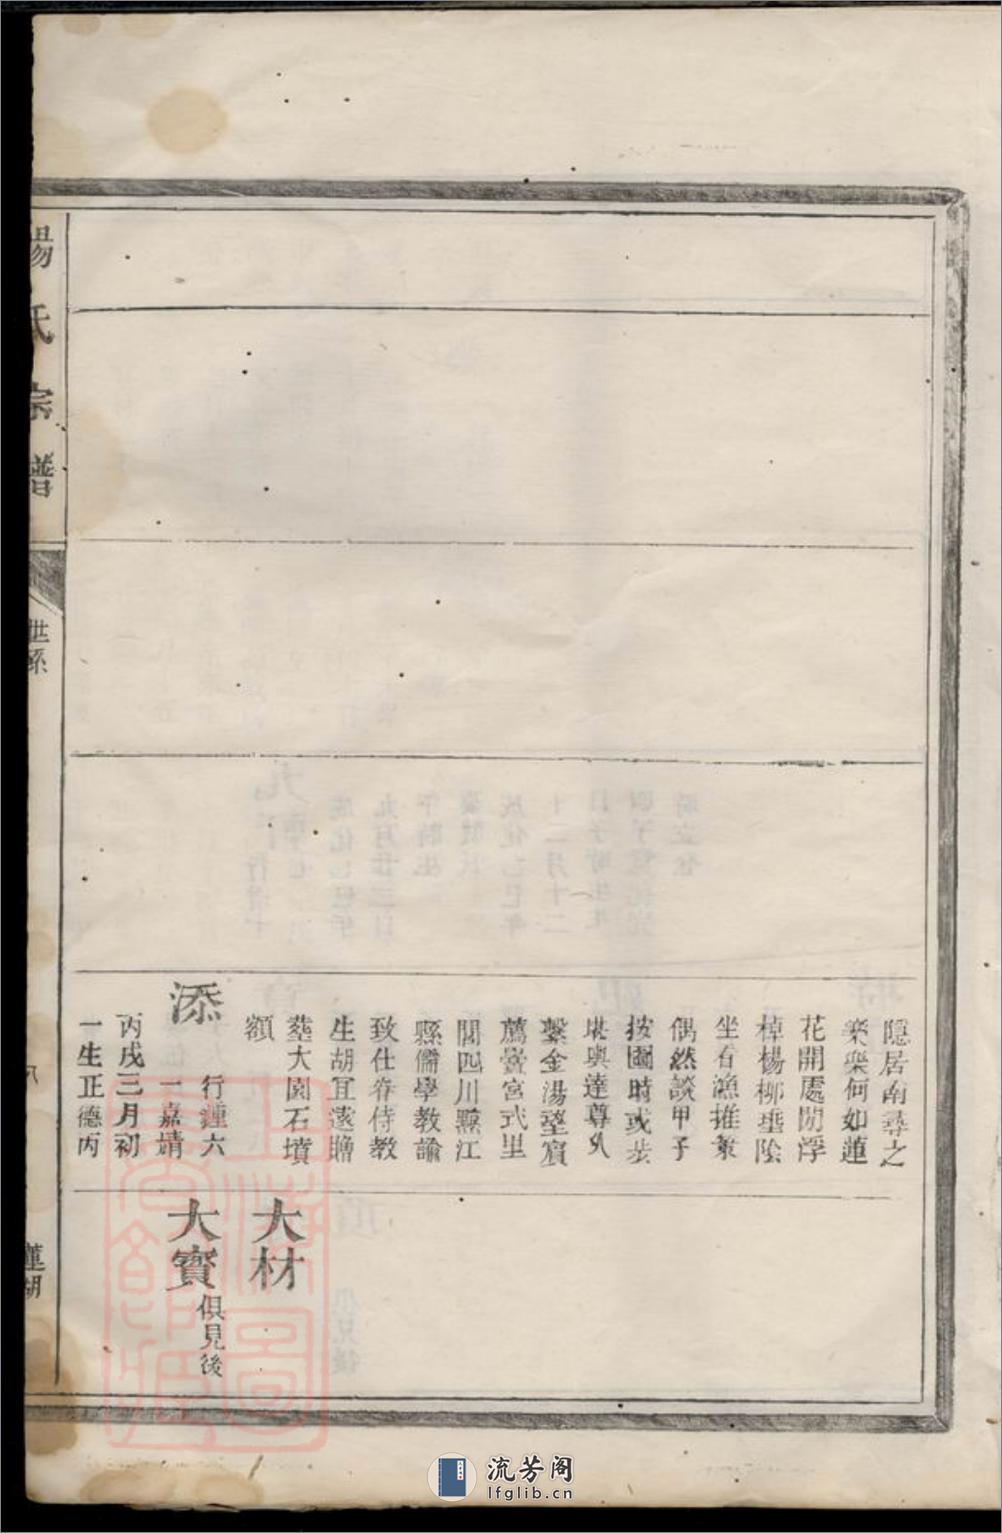 隱居南尋之
樂樂何如蓮
花開處閒浮
棹楊柳垂陰
坐看漁推兼
偶然談甲子
按圖時或步
堪輿達尊
繫金湯望賓
薦黌宮式里
閭四川黟江
縣儒學教諭
致仕眷侍教
生胡宜遂贈
塟大園石墳
額
添
行鍾六
一嘉靖
丙戌三月初
一生正德丙
大材
大賓
俱見後
楊氏宗譜
世系
八
蓮湖
上海圖書館藏
流芳阁
lfglib.cn